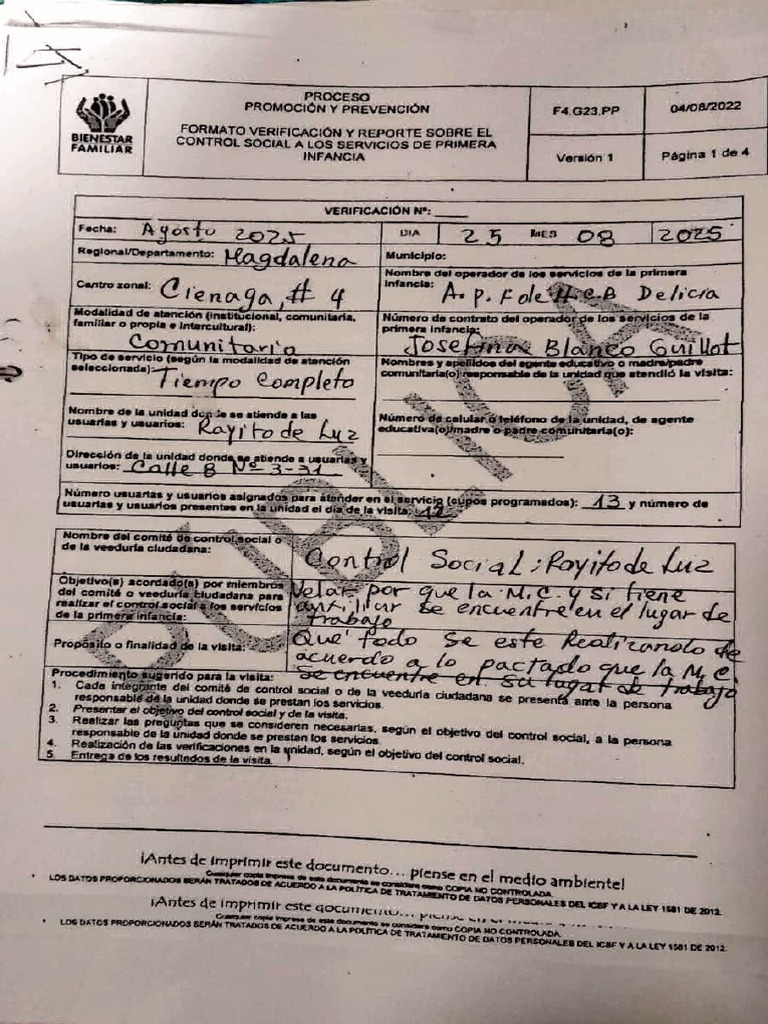 BIENESTAR
FAMILIAR
PROCESO
PROMOCIÓN Y PREVENCIÓN
FORMATO VERIFICACIÓN Y REPORTE SOBRE EL
CONTROL SOCIAL A LOS SERVICIOS DE PRIMERA
INFANCIA
F4.G23.PP
04/08/2022
Versión 1
Página 1 de 4
VERIFICACIÓN Nº: ____
Fecha: Agosto 2025
DIA 25 MES 08 2025
Regional/Departamento: Magdalena
Municipio:
Centro zonal: Cienaga # 4
Nombre del operador de los servicios de la primera
infancia: A. P. F de H.C.B Delicia
Modalidad de atención (institucional, comunitaria,
familiar o propia e intercultural):
Comunitario
Número de contrato del operador de los servicios de la
primera infancia:
Josefina Blanco Guillot
Tipo de servicio (según la modalidad de atención
seleccionada): Tiempo Completo
Nombres y apellidos del agente educativo o madre/padre
comunitaria(o) responsable de la unidad que atendió la visita:
Nombre de la unidad donde se atiende a las
usuarias y usuarios: Rayito de Luz
Número de celular o teléfono de la unidad, de agente
educativa(o)/madre o padre comunitaria(o):
Dirección de la unidad donde se atiende a usuarias y
usuarios: Calle 8 Nº 3-31
Número usuarias y usuarios asignados para atender en el servicio (cupos programados): 13 y número de
usuarias y usuarios presentes en la unidad el día de la visita: 12
PUBLICA
Nombre del comité de control social o
de la veeduría ciudadana:
Control Social: Rayito de Luz
Objetivo(s) acordado(s) por miembros
del comité o veeduría ciudadana para
realizar el control social a los servicios
de la primera infancia:
Velar por que la M.C. y si tiene
auxiliar se encuentre en el lugar de
trabajo
Propósito o finalidad de la visita:
Que todo se este Realizando de
acuerdo a lo pactado que la M.C.
se encuentre en su lugar de trabajo
Procedimiento sugerido para la visita:
1. Cada integrante del comité de control social o de la veeduría ciudadana se presenta ante la persona
responsable de la unidad donde se prestan los servicios.
2. Presentar el objetivo del control social y de la visita.
3. Realizar las preguntas que se consideren necesarias, según el objetivo del control social, a la persona
responsable de la unidad donde se prestan los servicios.
4. Realización de las verificaciones en la unidad, según el objetivo del control social.
5. Entrega de los resultados de la visita.
¡Antes de imprimir este documento... piense en el medio ambiente!
Cualquier copia impresa de este documento se considera como COPIA NO CONTROLADA.
LOS DATOS PROPORCIONADOS SERÁN TRATADOS DE ACUERDO A LA POLÍTICA DE TRATAMIENTO DE DATOS PERSONALES DEL ICBF Y A LA LEY 1581 DE 2012.
¡Antes de imprimir este documento... piense en el medio
Cualquier copia impresa de este documento se considera como COPIA NO CONTROLADA.
LOS DATOS PROPORCIONADOS SERÁN TRATADOS DE ACUERDO A LA POLÍTICA DE TRATAMIENTO DE DATOS PERSONALES DEL ICBF Y A LA LEY 1581 DE 2012.